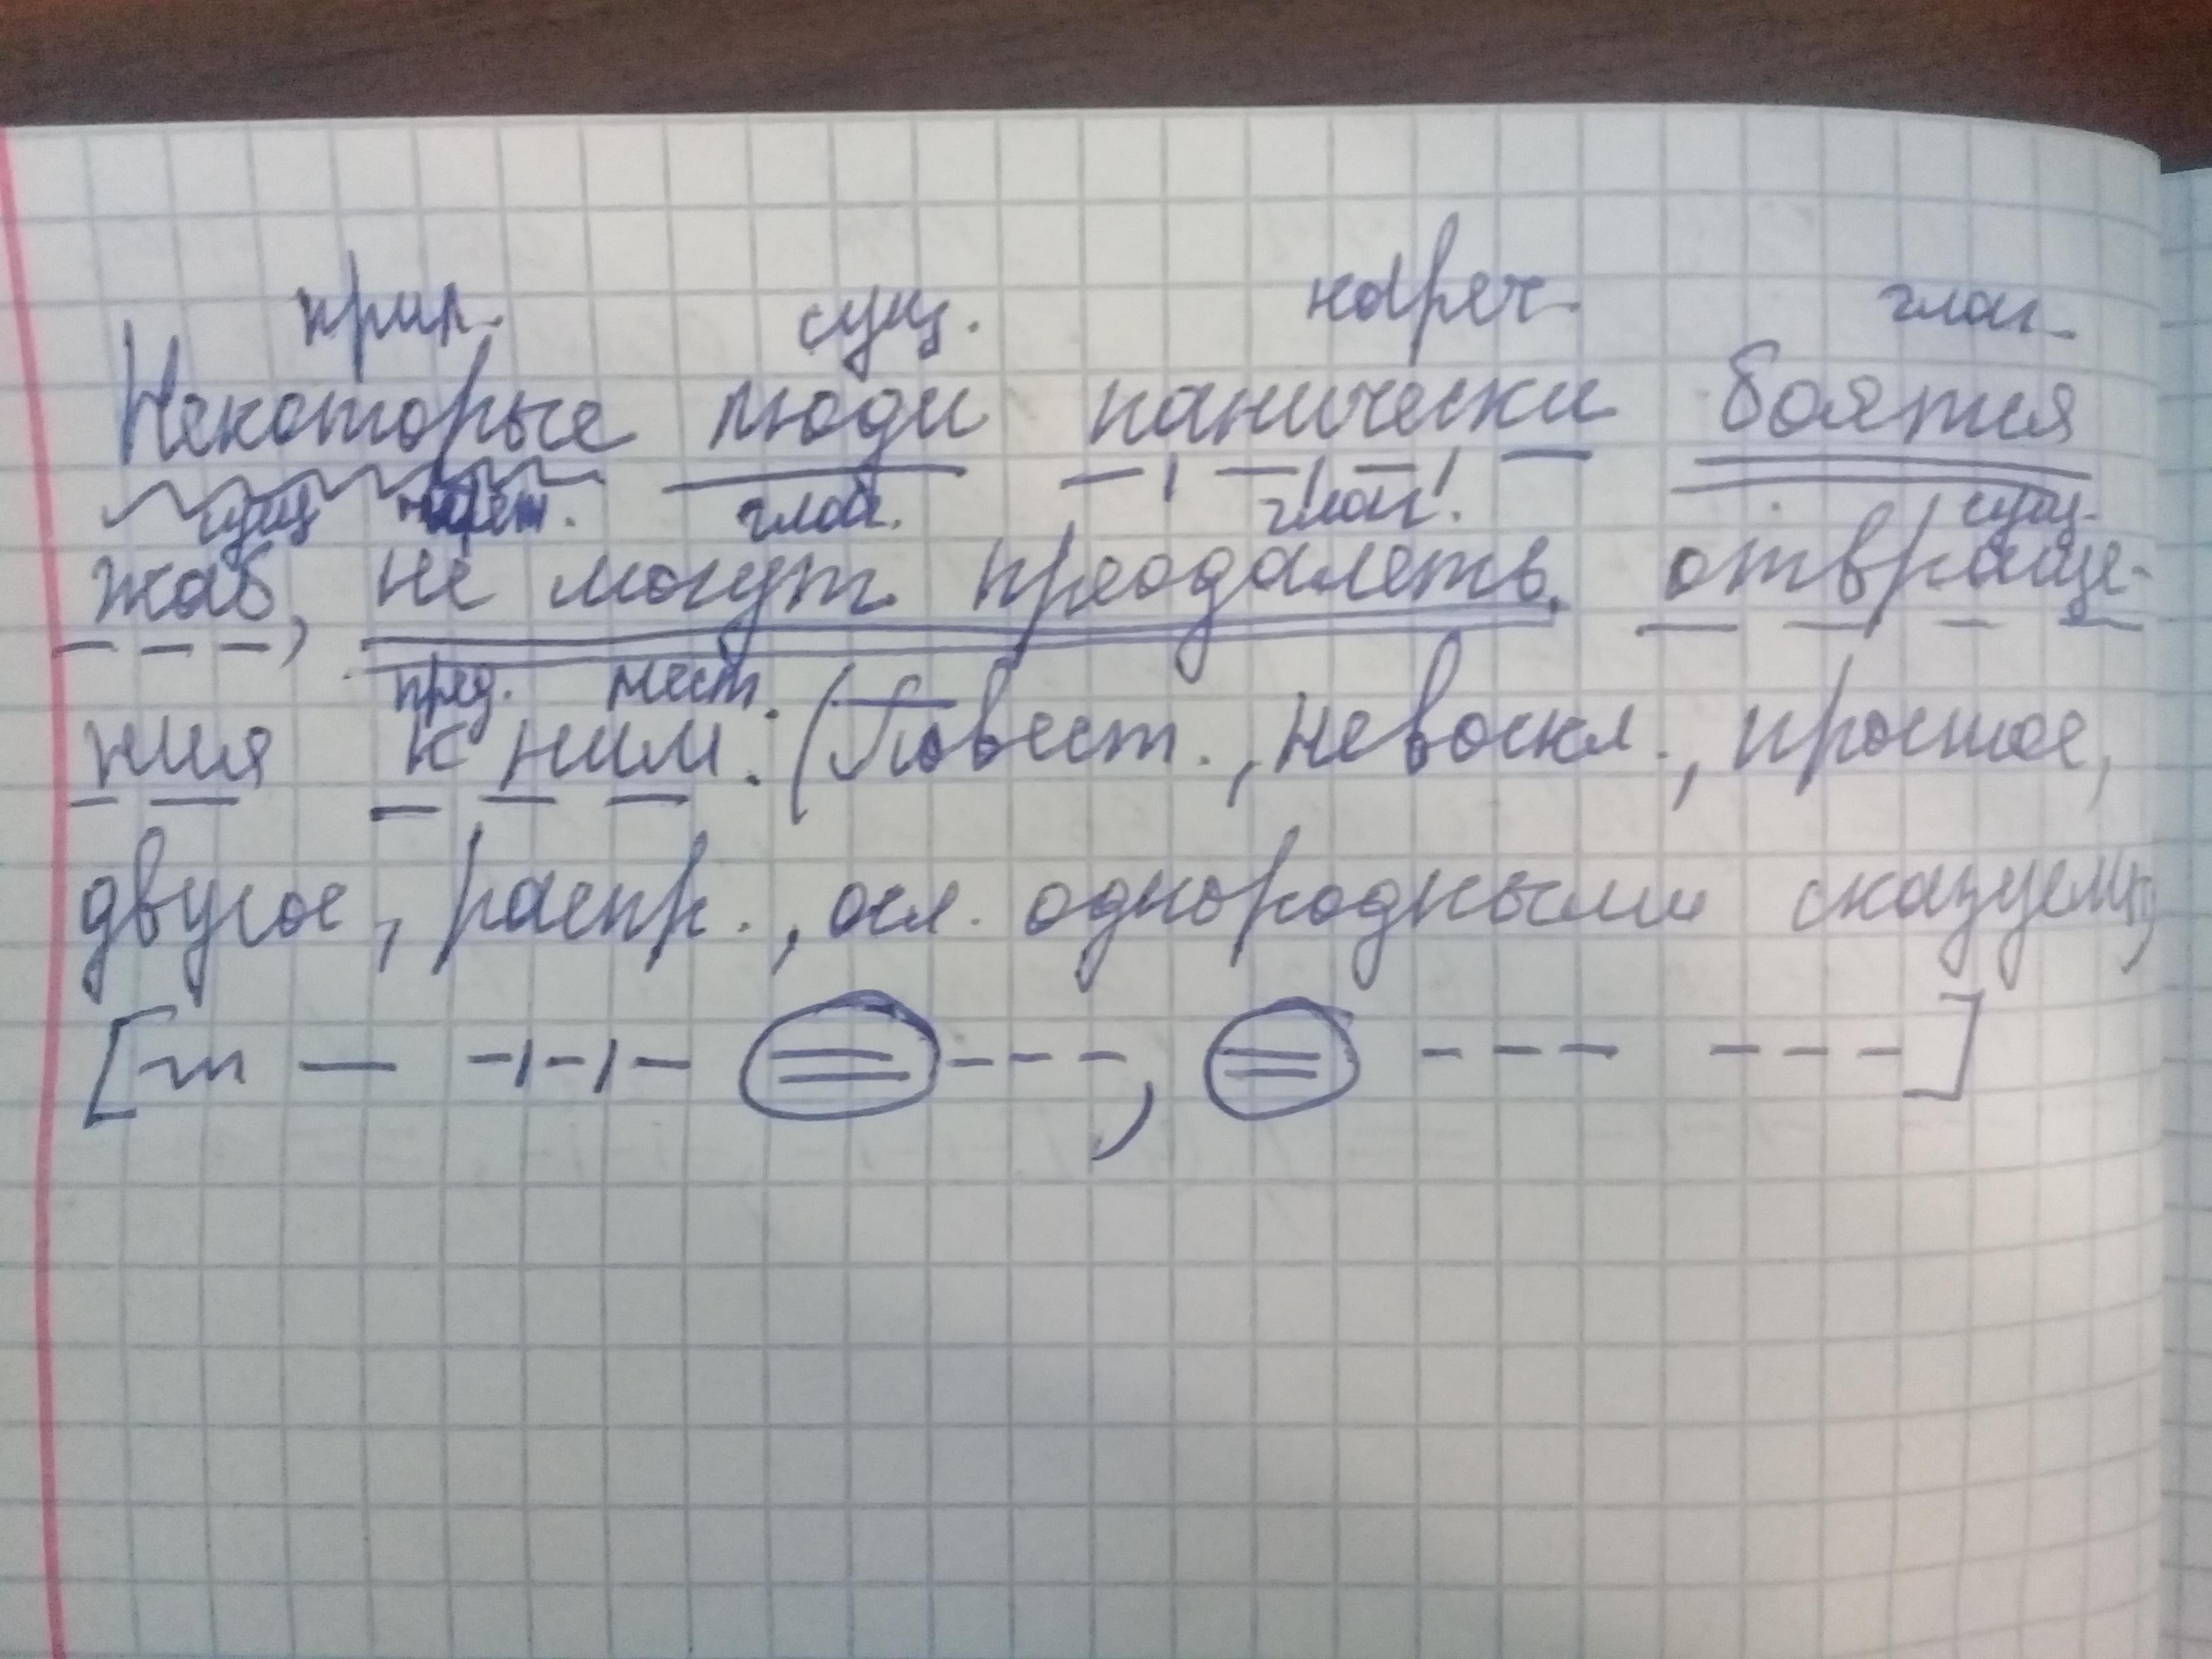 прил. сущ. нареч. глаг.
Некоторые люди панически боятся
сущ глаг. глаг. сущ.
жаб, не могут преодалеть отвраще-
пред. мест.
ния к ним. (Повест., невоскл., простое,
двусос, распр., осл. однородными сказуемы